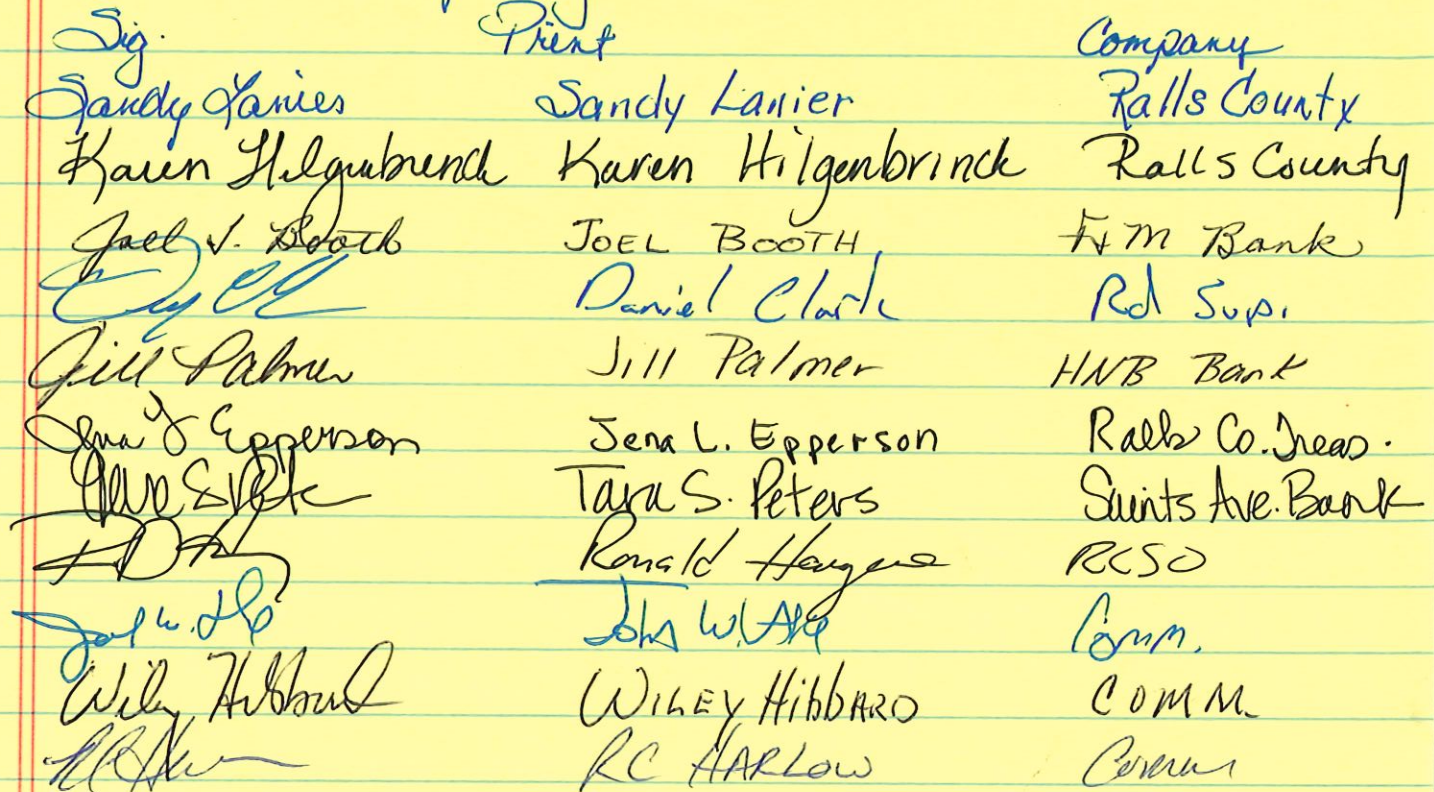 Sig. Print Company
Sandy Lanier Sandy Lanier Ralls County
Karen Hilgenbrinck Karen Hilgenbrinck Ralls County
Joel V. Booth JOEL BOOTH F&M Bank
Daniel Clark Rd Sup.
Jill Palmer Jill Palmer HNB Bank
Jena L Epperson Jena L. Epperson Ralls Co. Treas.
Tara S. Peters Saints Ave. Bank
Ronald RCSO
John W. Comm.
Wiley Hibbard WILEY HibbARD COMM.
RC HARLOW Comm